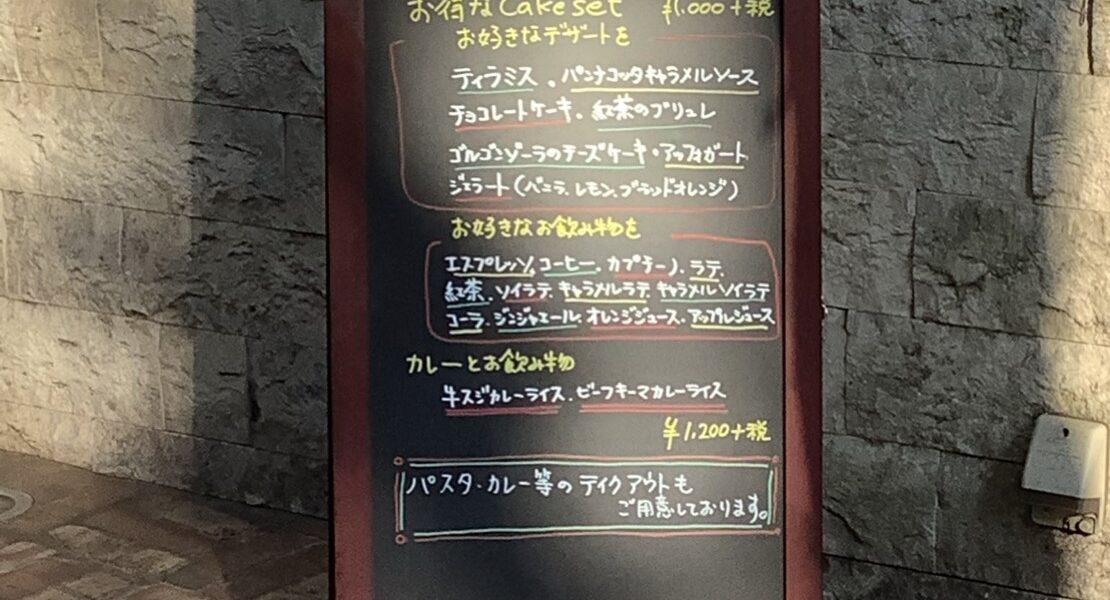 お得なCake set ¥1.000+税
お好きなデザートを
ティラミス、パンナコッタキャラメルソース
チョコレートケーキ、紅茶のブリュレ
ゴルゴンゾーラのチーズケーキ・アッフォガート
ジェラート(バニラ、レモン、ブラッドオレンジ)
お好きなお飲み物を
エスプレッソ、コーヒー、カプチーノ、ラテ、
紅茶、ソイラテ、キャラメルラテ、キャラメルソイラテ
コーラ、ジンジャエール、オレンジジュース、アップルジュース
カレーとお飲み物
牛スジカレーライス、ビーフキーマカレーライス
¥1,200+税
パスタ・カレー等のテイクアウトも
ご用意しております。